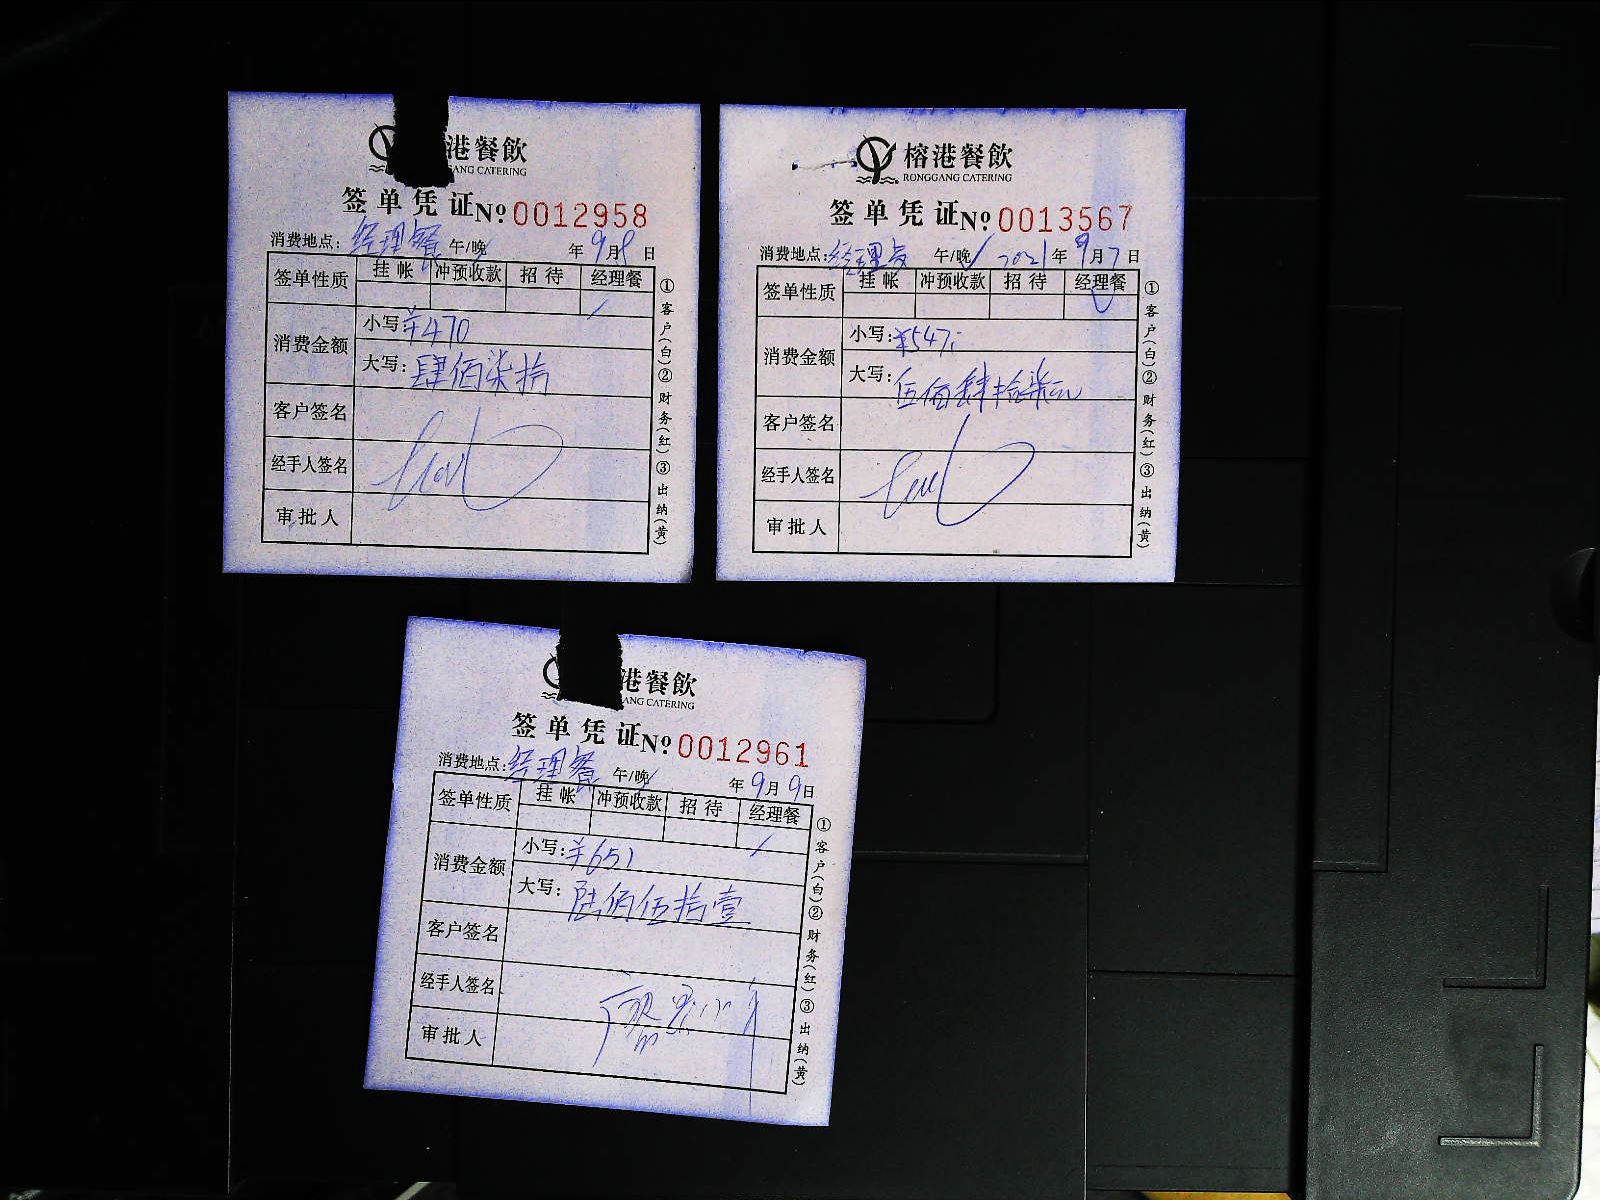 港餐飲
GANG CATERING
签单凭证№0012958
消费地点：经理餐 午/晚 年9月8日
签单性质 挂帐 冲预收款 招待 经理餐
消费金额 小写：¥470
大写：肆佰柒拾
客户签名
经手人签名
审批人
①客户(白)②财务(红)③出纳(黄)
榕港餐飲
RONGGANG CATERING
签单凭证№0013567
消费地点：经理 午/晚 2021年9月7日
签单性质 挂帐 冲预收款 招待 经理餐
消费金额 小写：¥547
大写：伍佰肆拾柒元
客户签名
经手人签名
审批人
①客户(白)②财务(红)③出纳(黄)
港餐飲
GANG CATERING
签单凭证№0012961
消费地点：经理餐 午/晚 年9月9日
签单性质 挂帐 冲预收款 招待 经理餐
消费金额 小写：¥651
大写：陆佰伍拾壹
客户签名
经手人签名
审批人
①客户(白)②财务(红)③出纳(黄)